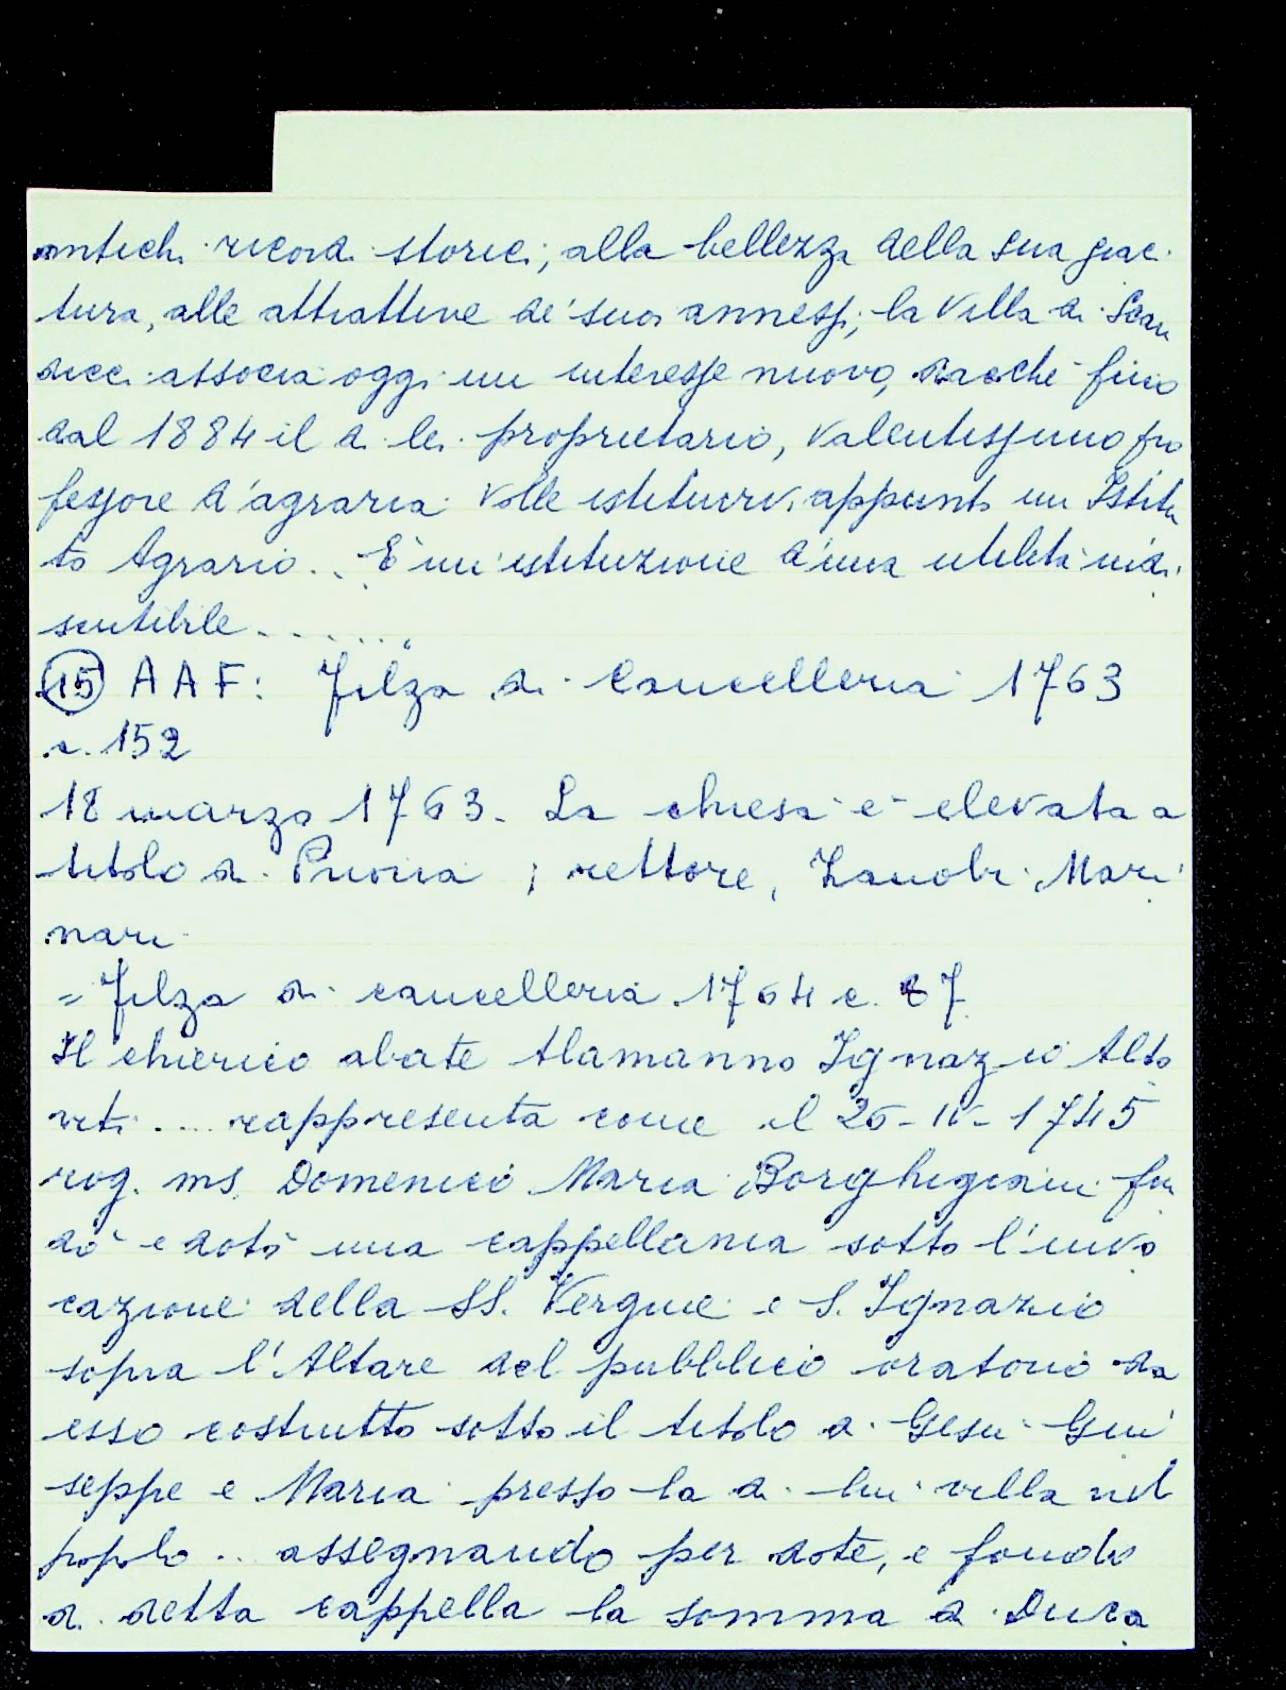 antichi ricordi storici, alla bellezza della sua giaci
tura, alle attrattive de' suoi annessi, la Villa di Scan
dicci associa oggi un interesse nuovo, dacché fino
dal 1884 il di lei proprietario, valentissimo pro
fessore d'agraria volle istituirvi appunto un Istitu
to Agrario... È un'istituzione d'una utilità indi
scutibile.......
(15) AAF: Filza di Cancelleria 1763
c. 152
18 marzo 1763. La chiesa è elevata a
titolo di Prioria; rettore, Zanobi Mari
nari
= Filza di cancelleria 1764 c. 87
Il chierico abate Alamanno Ignazio Alto
viti.... rappresenta come il 26-IV-1745
rog. ms. Domenico Maria Borghigiani fon
dò e dotò una cappellania sotto l'invo
cazione della SS. Vergine e S. Ignazio
sopra l'Altare del pubblico oratorio da
esso costrutto sotto il titolo di Gesù Giu
seppe e Maria presso la di lui villa nel
popolo... assegnando per dote, e fondo
di detta cappella la somma di Duca